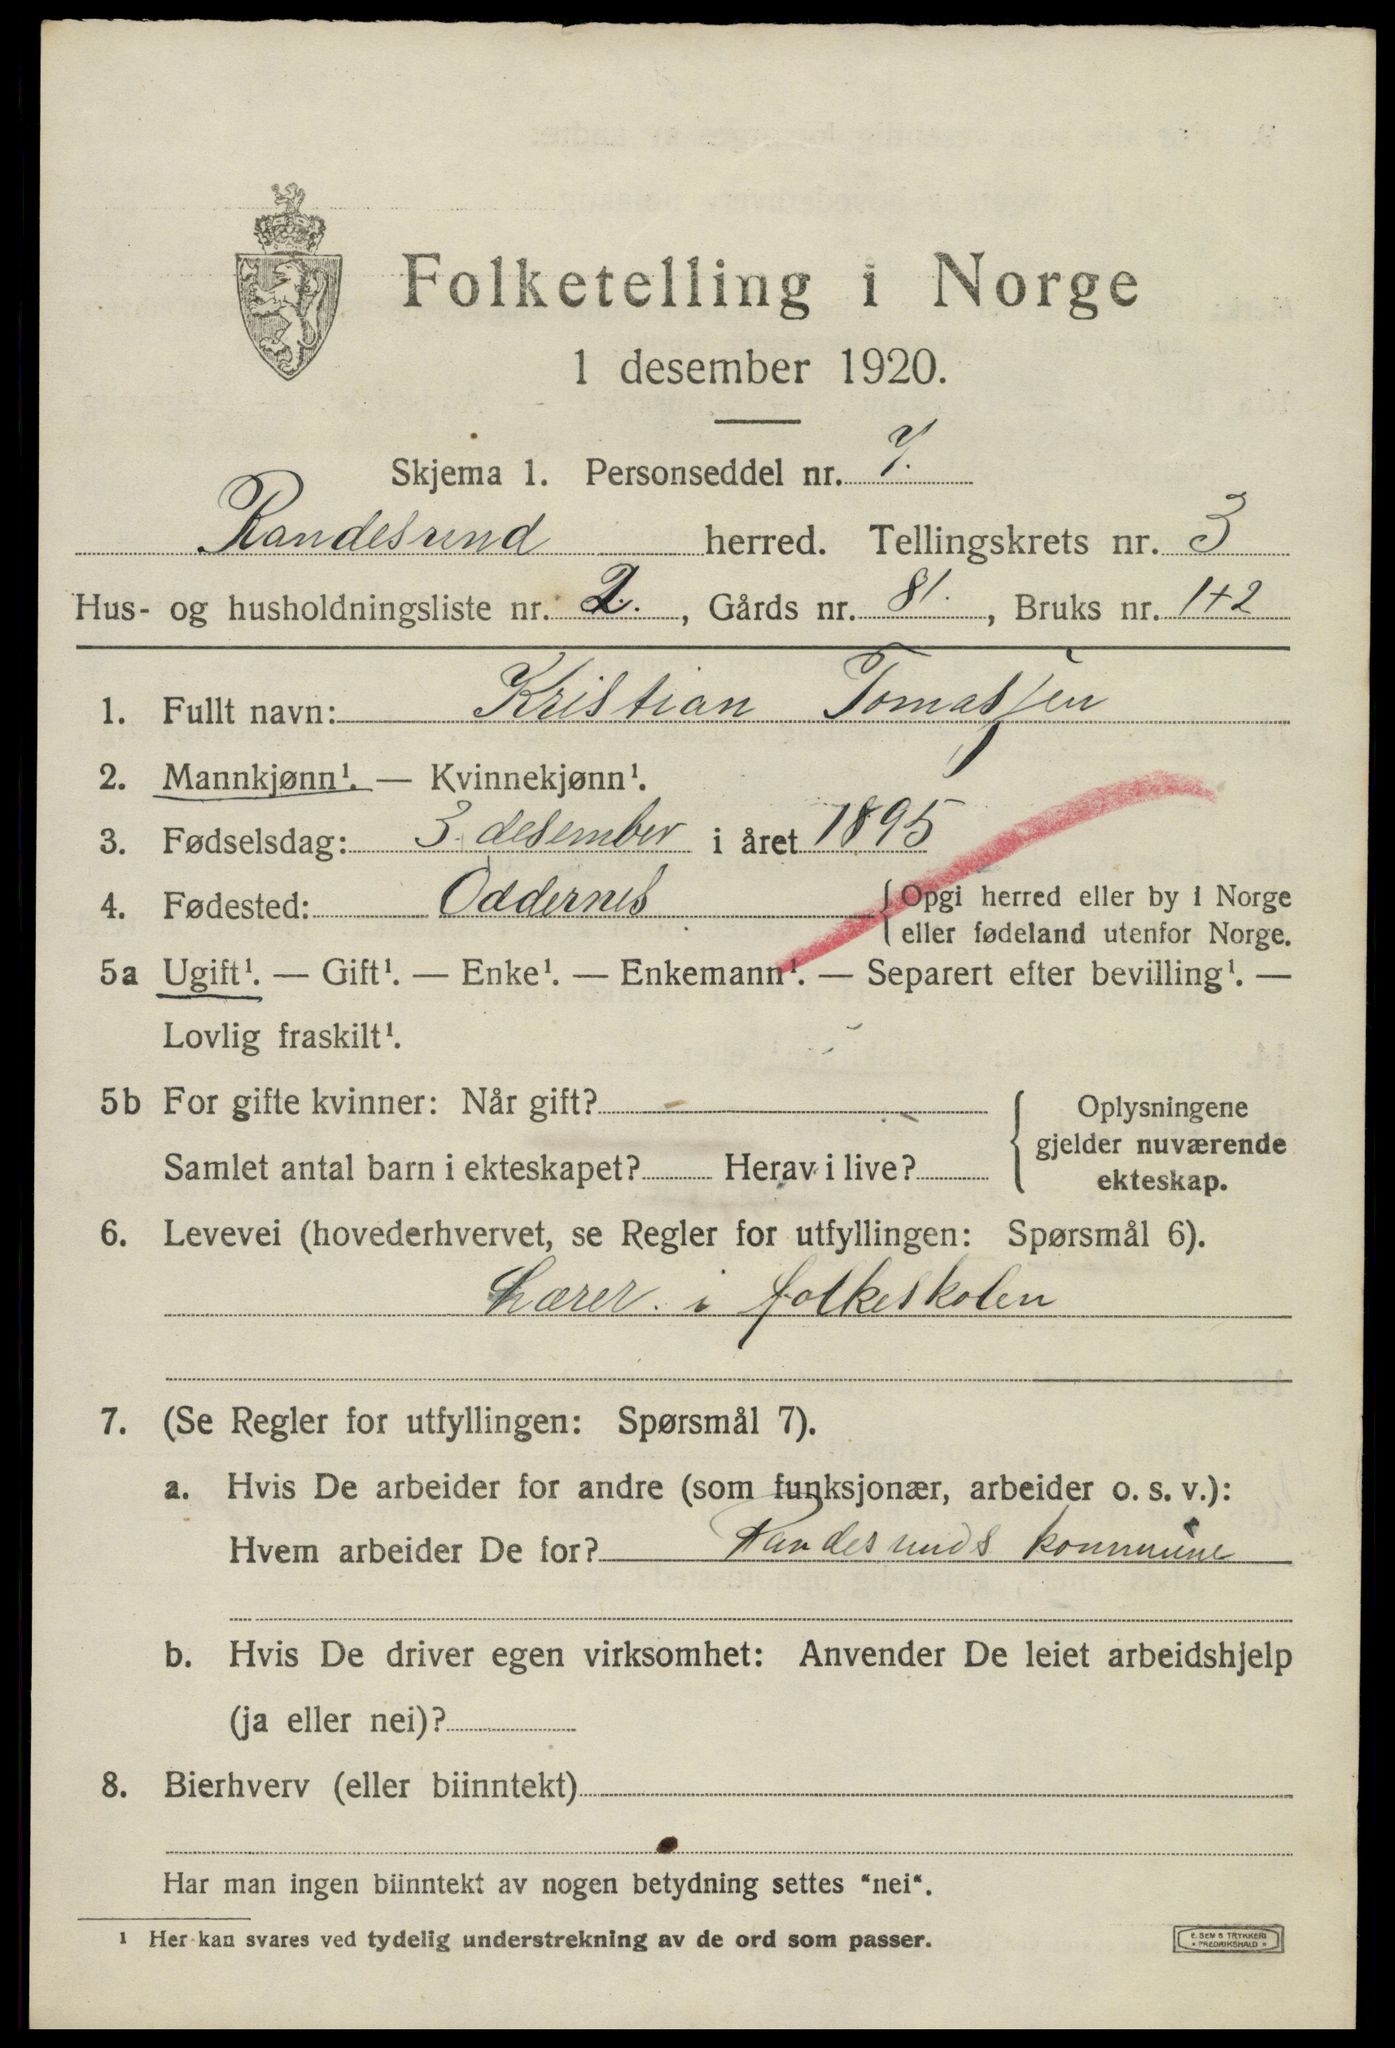 Folketelling i Norge
1 desember 1920.
Skjema 1. Personseddel nr. 7.
Randesund herred. Tellingskrets nr. 3
Hus- og husholdningsliste nr. 2., Gårds nr. 81., Bruks nr. 1+2
1. Fullt navn: Kristian Tomassen
2. Mannkjønn¹. — Kvinnekjønn¹.
3. Fødselsdag: 3. desember i året 1895
4. Fødested: Oddernes {Opgi herred eller by i Norge
eller fødeland utenfor Norge.
5a Ugift¹. — Gift¹. — Enke¹. — Enkemann¹. — Separert efter bevilling¹. —
Lovlig fraskilt¹.
5b For gifte kvinner: Når gift?
Samlet antal barn i ekteskapet? Herav i live?
Oplysningene
gjelder nuværende
ekteskap.
6. Levevei (hovederhvervet, se Regler for utfyllingen: Spørsmål 6).
Lærer. i folkeskolen
7. (Se Regler for utfyllingen: Spørsmål 7).
a. Hvis De arbeider for andre (som funksjonær, arbeider o. s. v.):
Hvem arbeider De for? Randesunds kommune
b. Hvis De driver egen virksomhet: Anvender De leiet arbeidshjelp
(ja eller nei)?
8. Bierhverv (eller biinntekt)
Har man ingen biinntekt av nogen betydning settes "nei".
1 Her kan svares ved tydelig understrekning av de ord som passer.
E. SEM'S TRYKKERI
• FREDRIKSHALD •